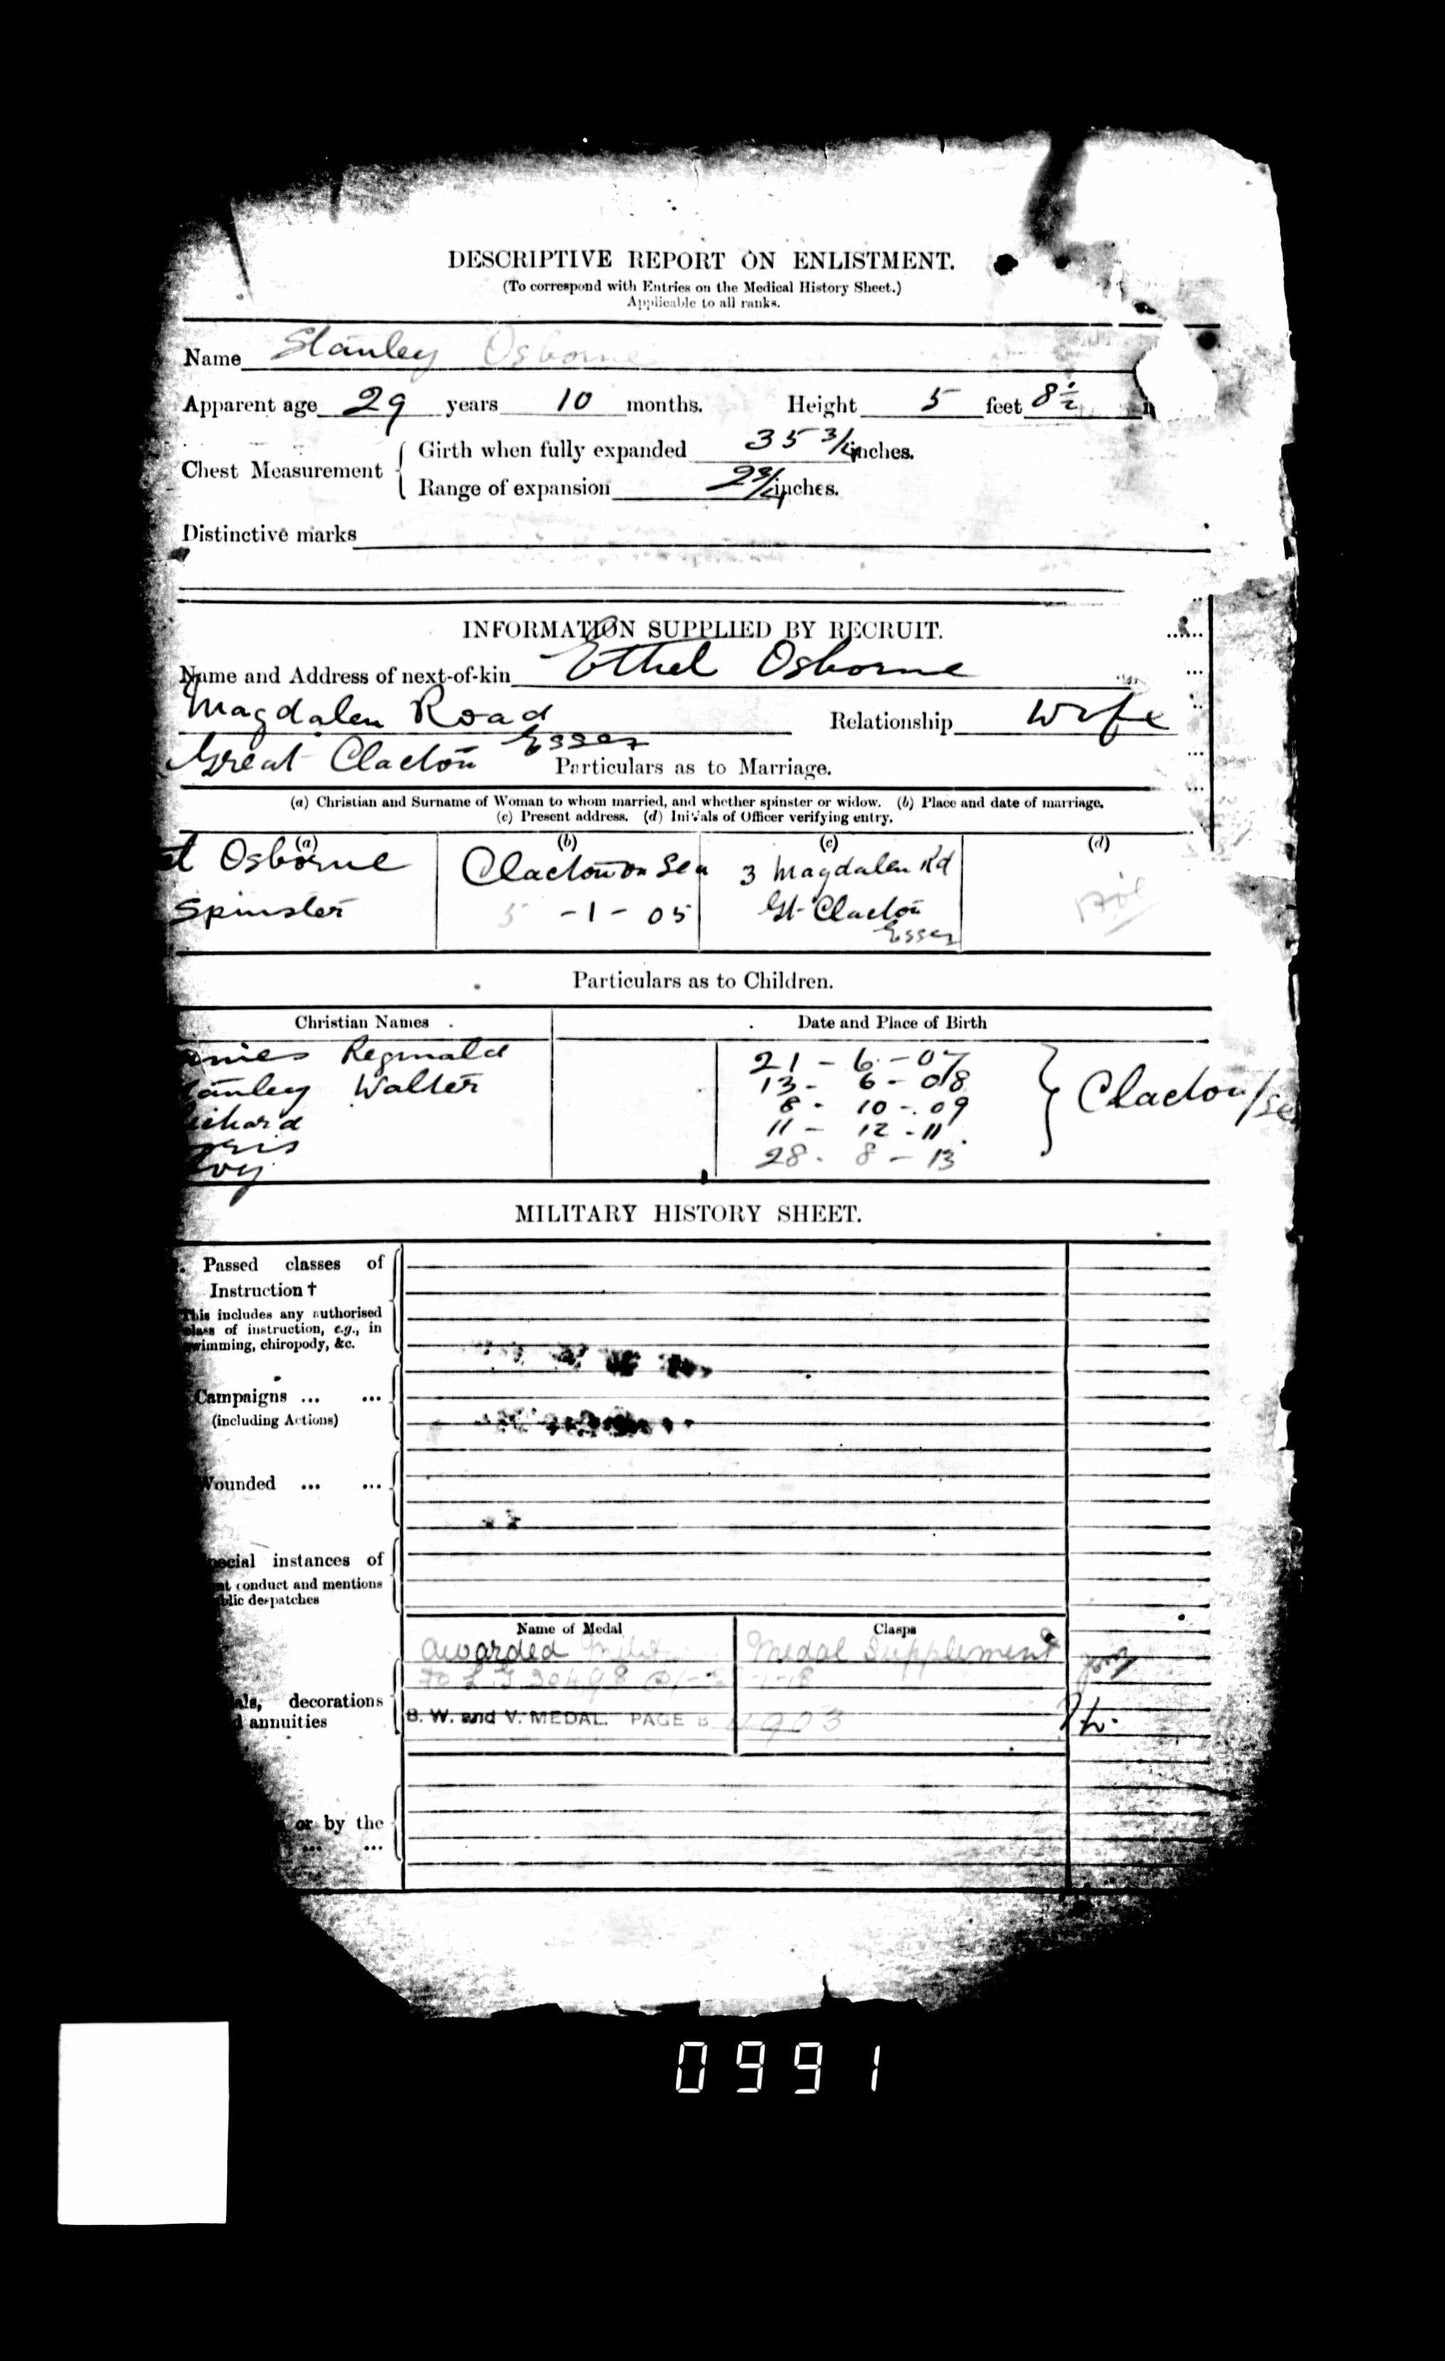 DESCRIPTIVE REPORT ON ENLISTMENT.
(To correspond with Entries on the Medical History Sheet.)
Applicable to all ranks.
Name Stanley Osborne
Apparent age 29 years 10 months. Height 5 feet 8½
Chest Measurement { Girth when fully expanded 35 3/4 inches.
Range of expansion 2 3/4 inches.
Distinctive marks
INFORMATION SUPPLIED BY RECRUIT.
Name and Address of next-of-kin Ethel Osborne
Magdalen Road Relationship Wife
Great Clacton Essex
Particulars as to Marriage.
(a) Christian and Surname of Woman to whom married, and whether spinster or widow. (b) Place and date of marriage.
(c) Present address. (d) Initials of Officer verifying entry.
(a) (b) (c) (d)
Osborne Clacton on Sea 3 Magdalen Rd
Spinster 5 -1- 05 Gt Clacton
Essex
Particulars as to Children.
Christian Names Date and Place of Birth
Reginald 21 - 6 - 07
Stanley Walter 13 - 6 - 08 } Clacton/Sea
Richard 8 - 10 - 09
11 - 12 - 11
28 - 8 - 13
MILITARY HISTORY SHEET.
Passed classes of
Instruction †
This includes any authorised
class of instruction, e.g., in
swimming, chiropody, &c.
Campaigns ... ...
(including Actions)
Wounded ... ...
instances of
conduct and mentions
despatches
Name of Medal Clasps
awarded Medal Supplement
to L G 30498
decorations
annuities
B. W. and V. MEDAL. PAGE B 4903
or by the
... ...
0991